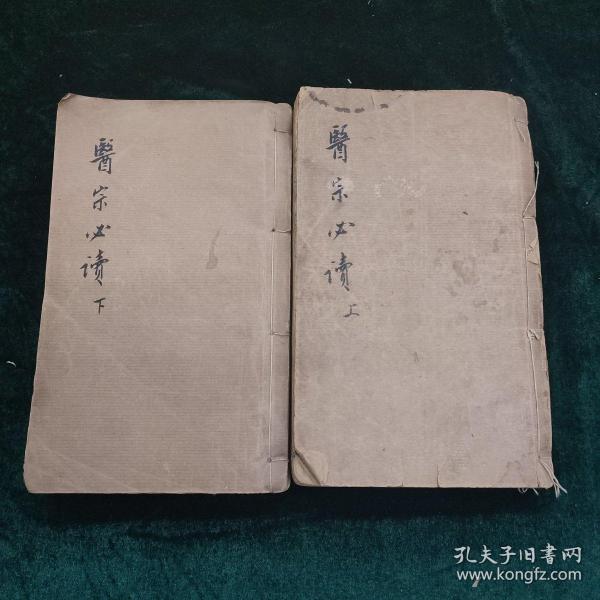 醫宗必讀
下
醫宗必讀
上
孔夫子旧书网
www.kongfz.com